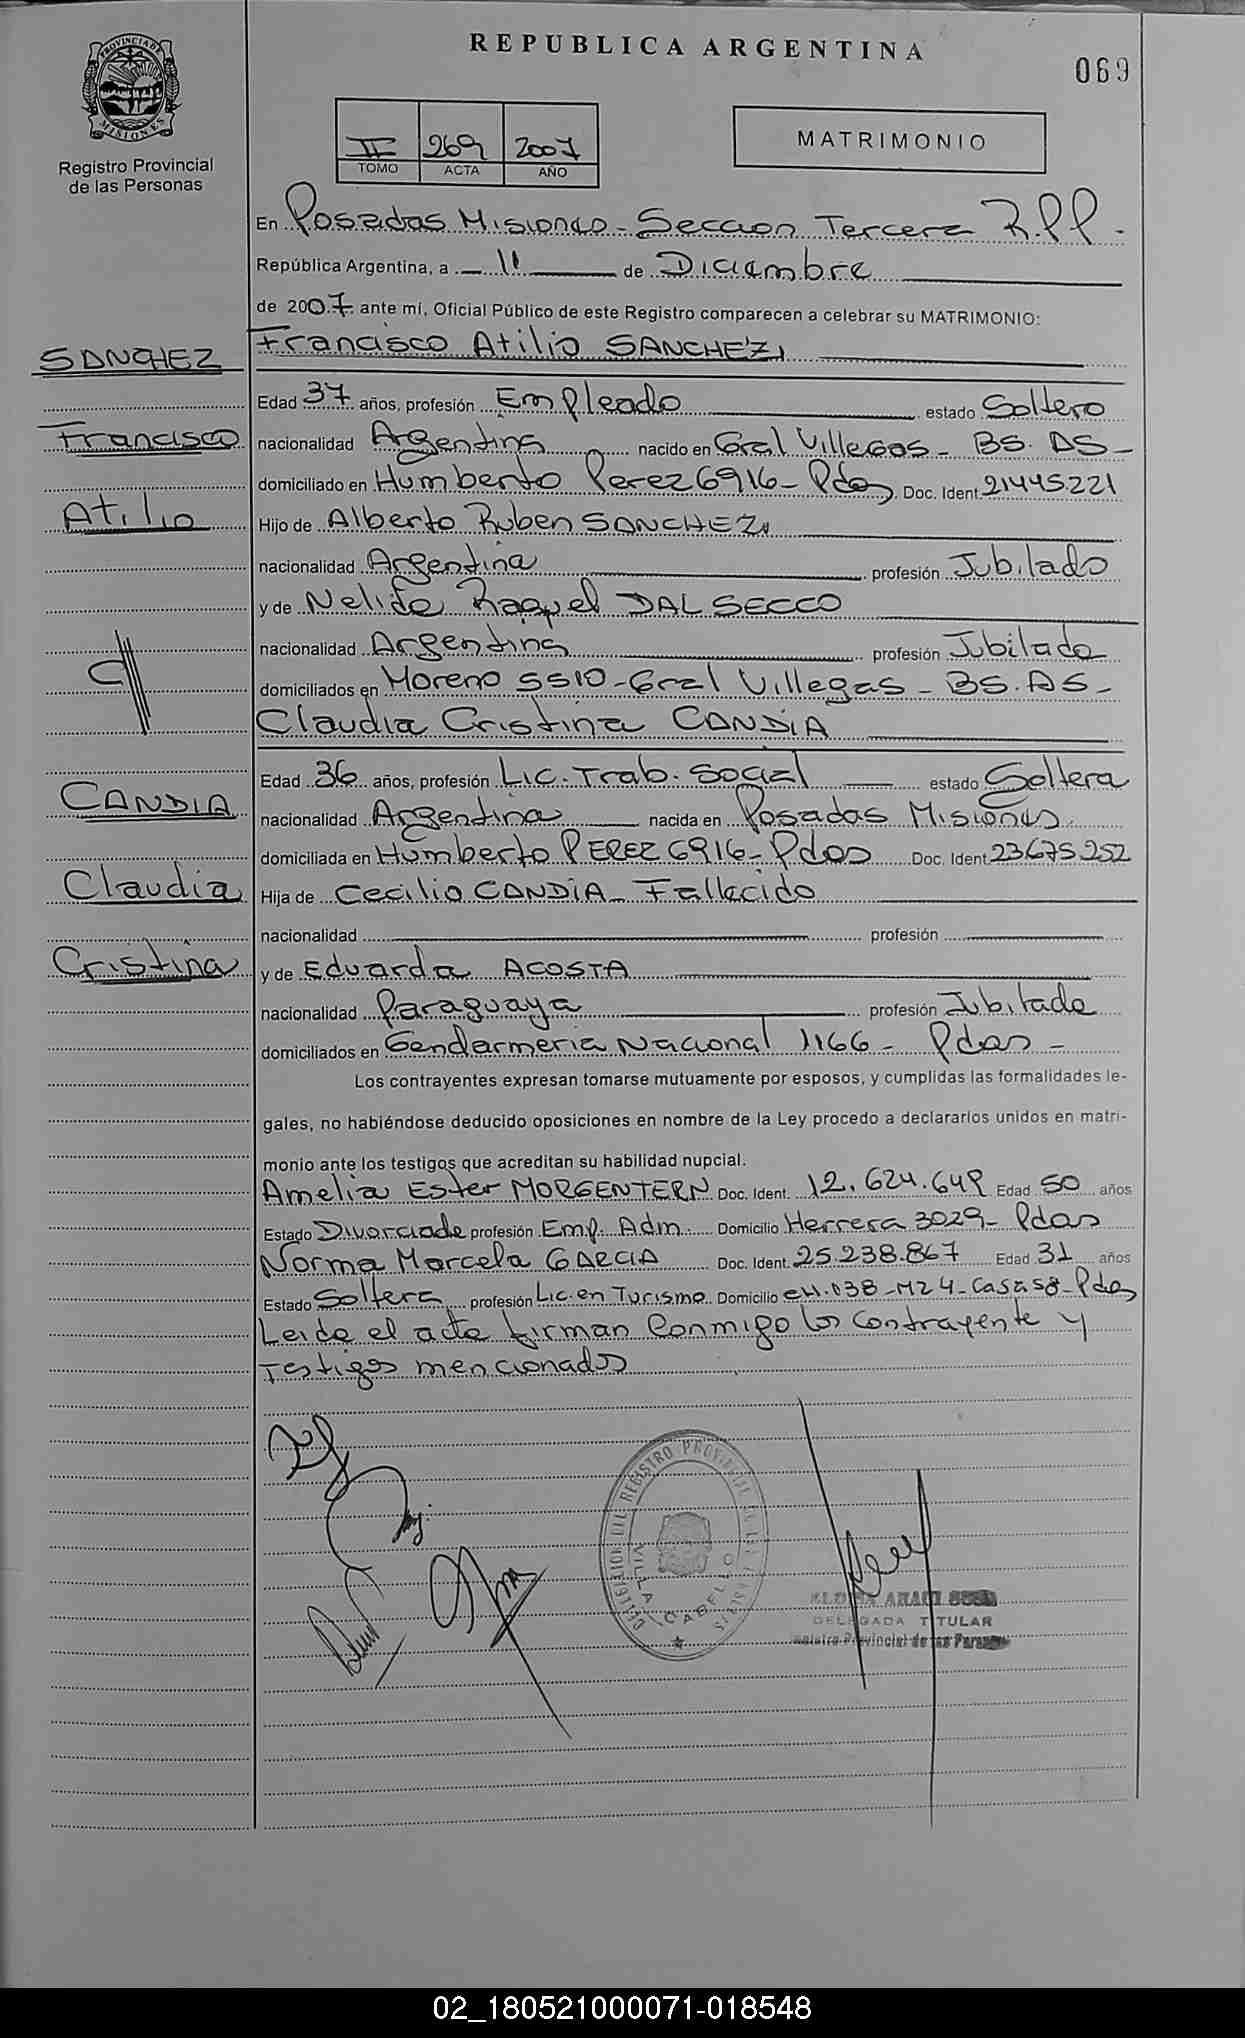 REPUBLICA ARGENTINA
069
PROVINCIA DE MISIONES
Registro Provincial
de las Personas
II 269 2007
TOMO ACTA AÑO
MATRIMONIO
En Posadas Misiones - Seccion Tercera R.P.P. -
República Argentina, a 11 de Diciembre
de 2007 ante mí, Oficial Público de este Registro comparecen a celebrar su MATRIMONIO:
Francisco Atilio SANCHEZ
SANCHEZ
Edad 37 años, profesión Empleado estado Soltero
Francisco
nacionalidad Argentina nacido en Gral Villegas - BS. AS -
domiciliado en Humberto Perez 6916 - Pdas Doc. Ident 21445221
Atilio
Hijo de Alberto Ruben SANCHEZ
nacionalidad Argentina profesión Jubilado
y de Nelida Raquel DAL SECCO
nacionalidad Argentina profesión Jubilada
domiciliados en Moreno 5510 - Gral Villegas - BS. AS -
Claudia Cristina CANDIA
Edad 36 años, profesión Lic. Trab. Social estado Soltera
CANDIA
nacionalidad Argentina nacida en Posadas Misiones
domiciliada en Humberto PEREZ 6916 - Pdas Doc. Ident. 23.675.252
Claudia
Hija de Cecilio CANDIA - Fallecido
nacionalidad profesión
Cristina
y de Eduarda ACOSTA
nacionalidad Paraguaya profesión Jubilada
domiciliados en Gendarmeria Nacional 1166 - Pdas -
Los contrayentes expresan tomarse mutuamente por esposos, y cumplidas las formalidades le-
gales, no habiéndose deducido oposiciones en nombre de la Ley procedo a declararlos unidos en matri-
monio ante los testigos que acreditan su habilidad nupcial.
Amelia Ester MORGENTERN Doc. Ident. 12.624.649 Edad 50 años
Estado Divorciada profesión Emp. Adm. Domicilio Herrera 3029 - Pdas
Norma Marcela GARCIA Doc. Ident. 25.238.867 Edad 31 años
Estado Soltera profesión Lic. en Turismo Domicilio eH.038 - M24 - Casa 58 - Pdas
Leida el acta firman conmigo los contrayente y
Testigos mencionados
DELEGACION DEL REGISTRO PROVINCIAL DE LAS PERSONAS
VILLA CABELLO
DELEGADA TITULAR
Registro Provincial de las Personas
02_180521000071-018548